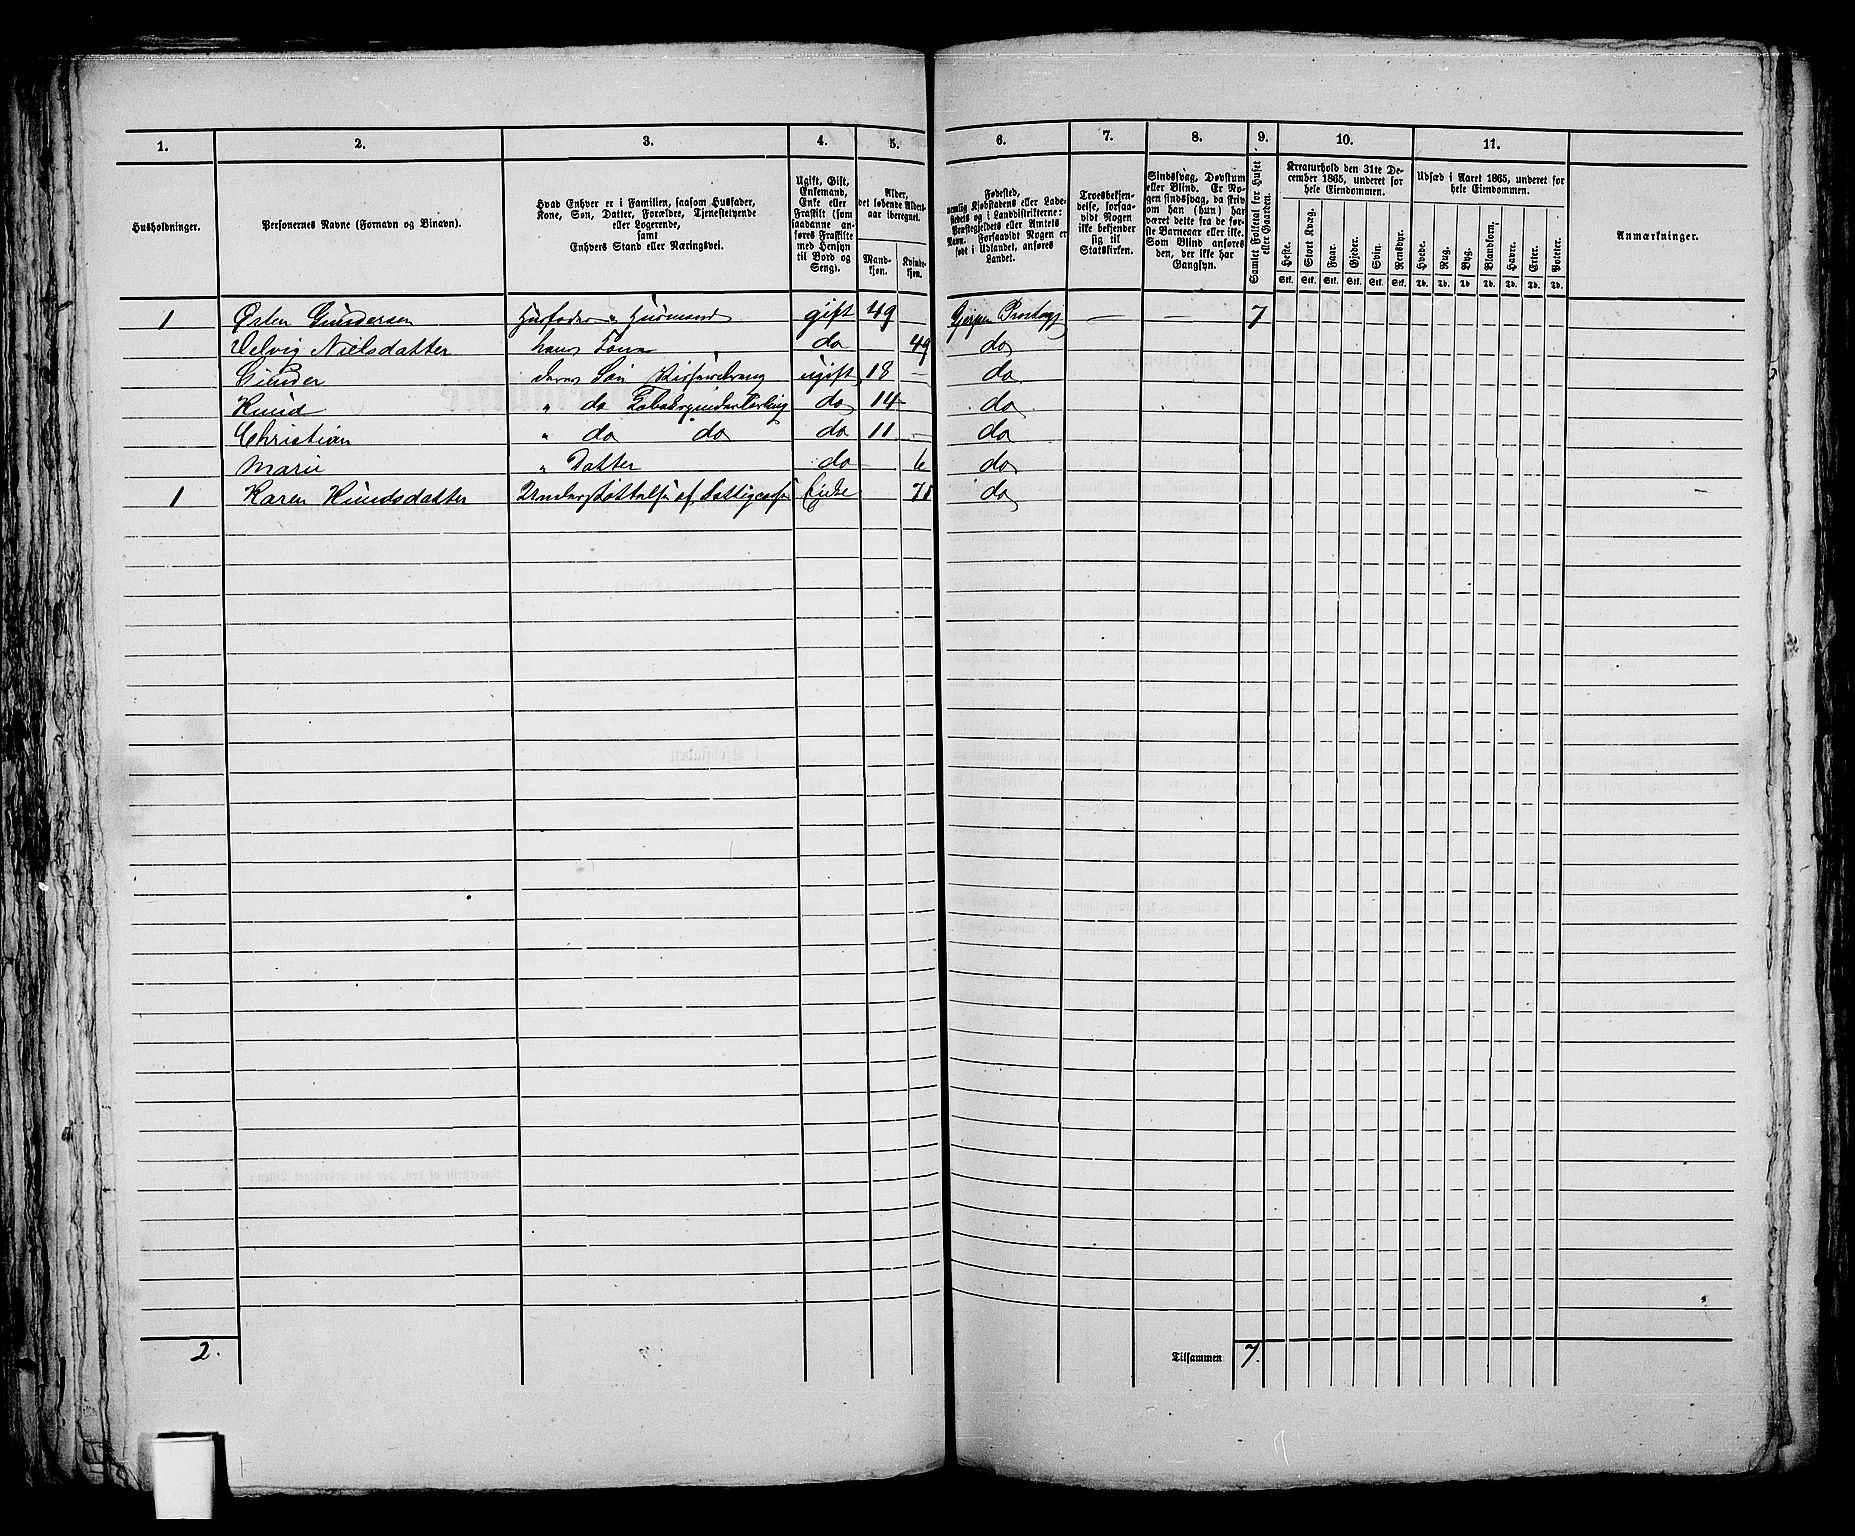 1. 2. 3. 4. 5. 6. 7. 8. 9. 10. 11.
Husholdninger.
Personernes Navne (Fornavn og Binavn).
Hvad Enhver er i Familien, saasom Husfader,
Kone, Søn, Datter, Forældre, Tjenestetyende
eller Logerende,
samt
Enhvers Stand eller Næringsvei.
Ugift, Gift,
Enkemand,
Enke eller
Fraskilt (som
saadanne an-
føres Fraskilte
med Hensyn
til Bord og
Seng).
Alder,
det løbende Alders-
aar iberegnet.
Mand-
kjøn.
Kvinde-
kjøn.
Fødested,
nemlig Kjøbstadens eller Lade-
stedets og i Landdistrikterne:
Præstegjeldets eller Amtets
Navn. Forsaavidt Nogen er
født i Udlandet, anføres
Landet.
Troesbekjen-
delse, forsaa-
vidt Nogen
ikke bekjender
sig til
Statskirken.
Sindssvag, Døvstum
eller Blind. Er No-
gen sindssvag, da skriv
om han (hun) har
været dette fra de før-
ste Barneaar eller ikke.
Som Blind anføres
den, der ikke har
Gangsyn.
Samlet Folketal for Huset
eller Gaarden.
Kreaturhold den 31te De-
cember 1865, underet for
hele Eiendommen.
Heste. Stort Kvæg. Faar. Gjeder. Svin. Rensdyr.
Stk. Stk. Stk. Stk. Stk. Stk.
Udsæd i Aaret 1865, underet for
hele Eiendommen.
Hvede. Rug. Byg. Blandkorn. Havre. Erter. Poteter.
Td. Td. Td. Td. Td. Td. Td.
Anmærkninger.
1 Østen Gundersen Husfader, Husmand gift 49 Gjerpen Prstegj — — 7
Velvig Nielsdatter hans Kone do 49 do
Gunder deres Søn ugift 18 — do
Knud " do do 14 do
Christian " do do do 11 — do
Marie " Datter do 6 do
1 Karen Knudsdatter Understøttelse af Fattigcassen Enke 71 do
2.
Tilsammen 7.